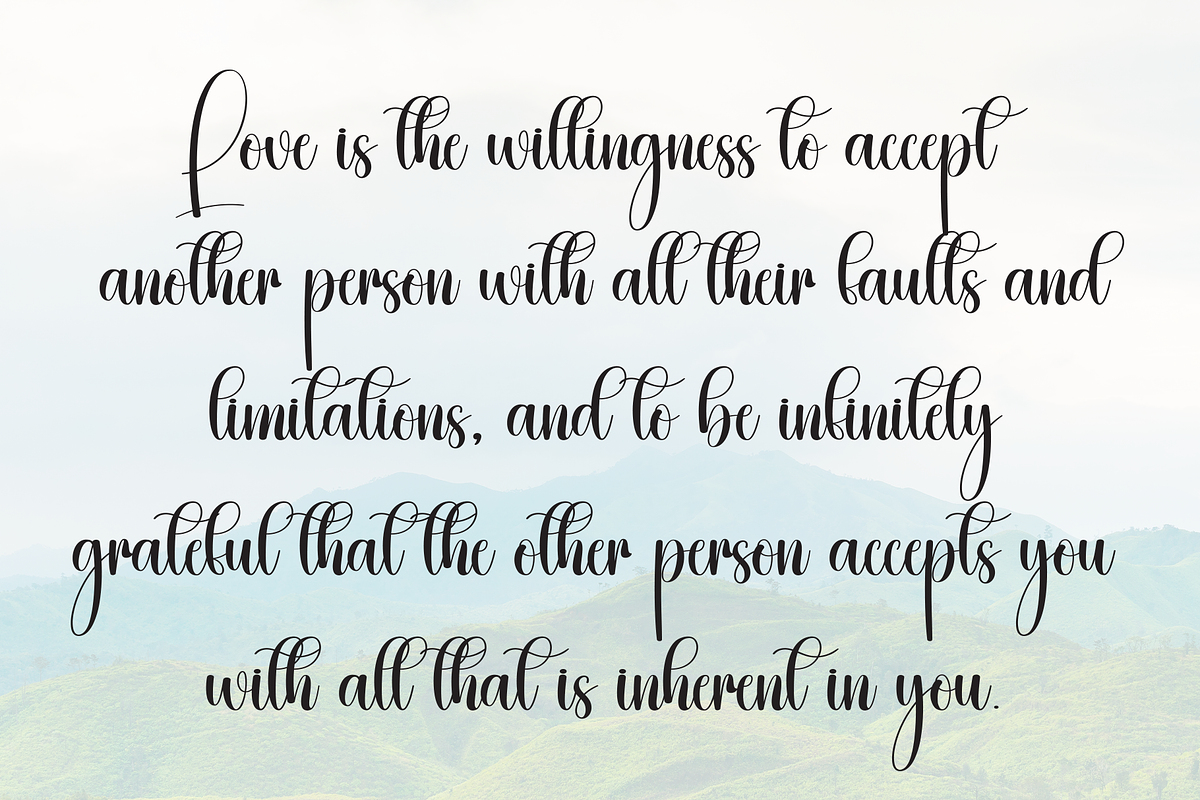 Love is the willingness to accept
another person with all their faults and
limitations, and to be infinitely
grateful that the other person accepts you
with all that is inherent in you.